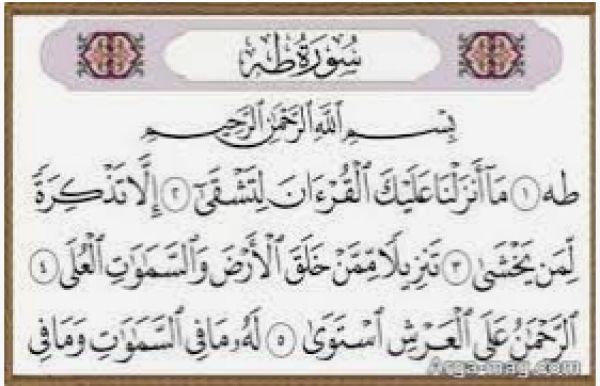 سُورَةُ طه
بِسْمِ ٱللَّهِ ٱلرَّحْمَٰنِ ٱلرَّحِيمِ
طه ۝١ مَآ أَنزَلْنَا عَلَيْكَ ٱلْقُرْءَانَ لِتَشْقَىٰٓ ۝٢ إِلَّا تَذْكِرَةً
لِّمَن يَخْشَىٰ ۝٣ تَنزِيلًا مِّمَّنْ خَلَقَ ٱلْأَرْضَ وَٱلسَّمَٰوَٰتِ ٱلْعُلَى ۝٤
ٱلرَّحْمَٰنُ عَلَى ٱلْعَرْشِ ٱسْتَوَىٰ ۝٥ لَهُۥ مَا فِى ٱلسَّمَٰوَٰتِ وَمَا فِى
Arga-mag.com